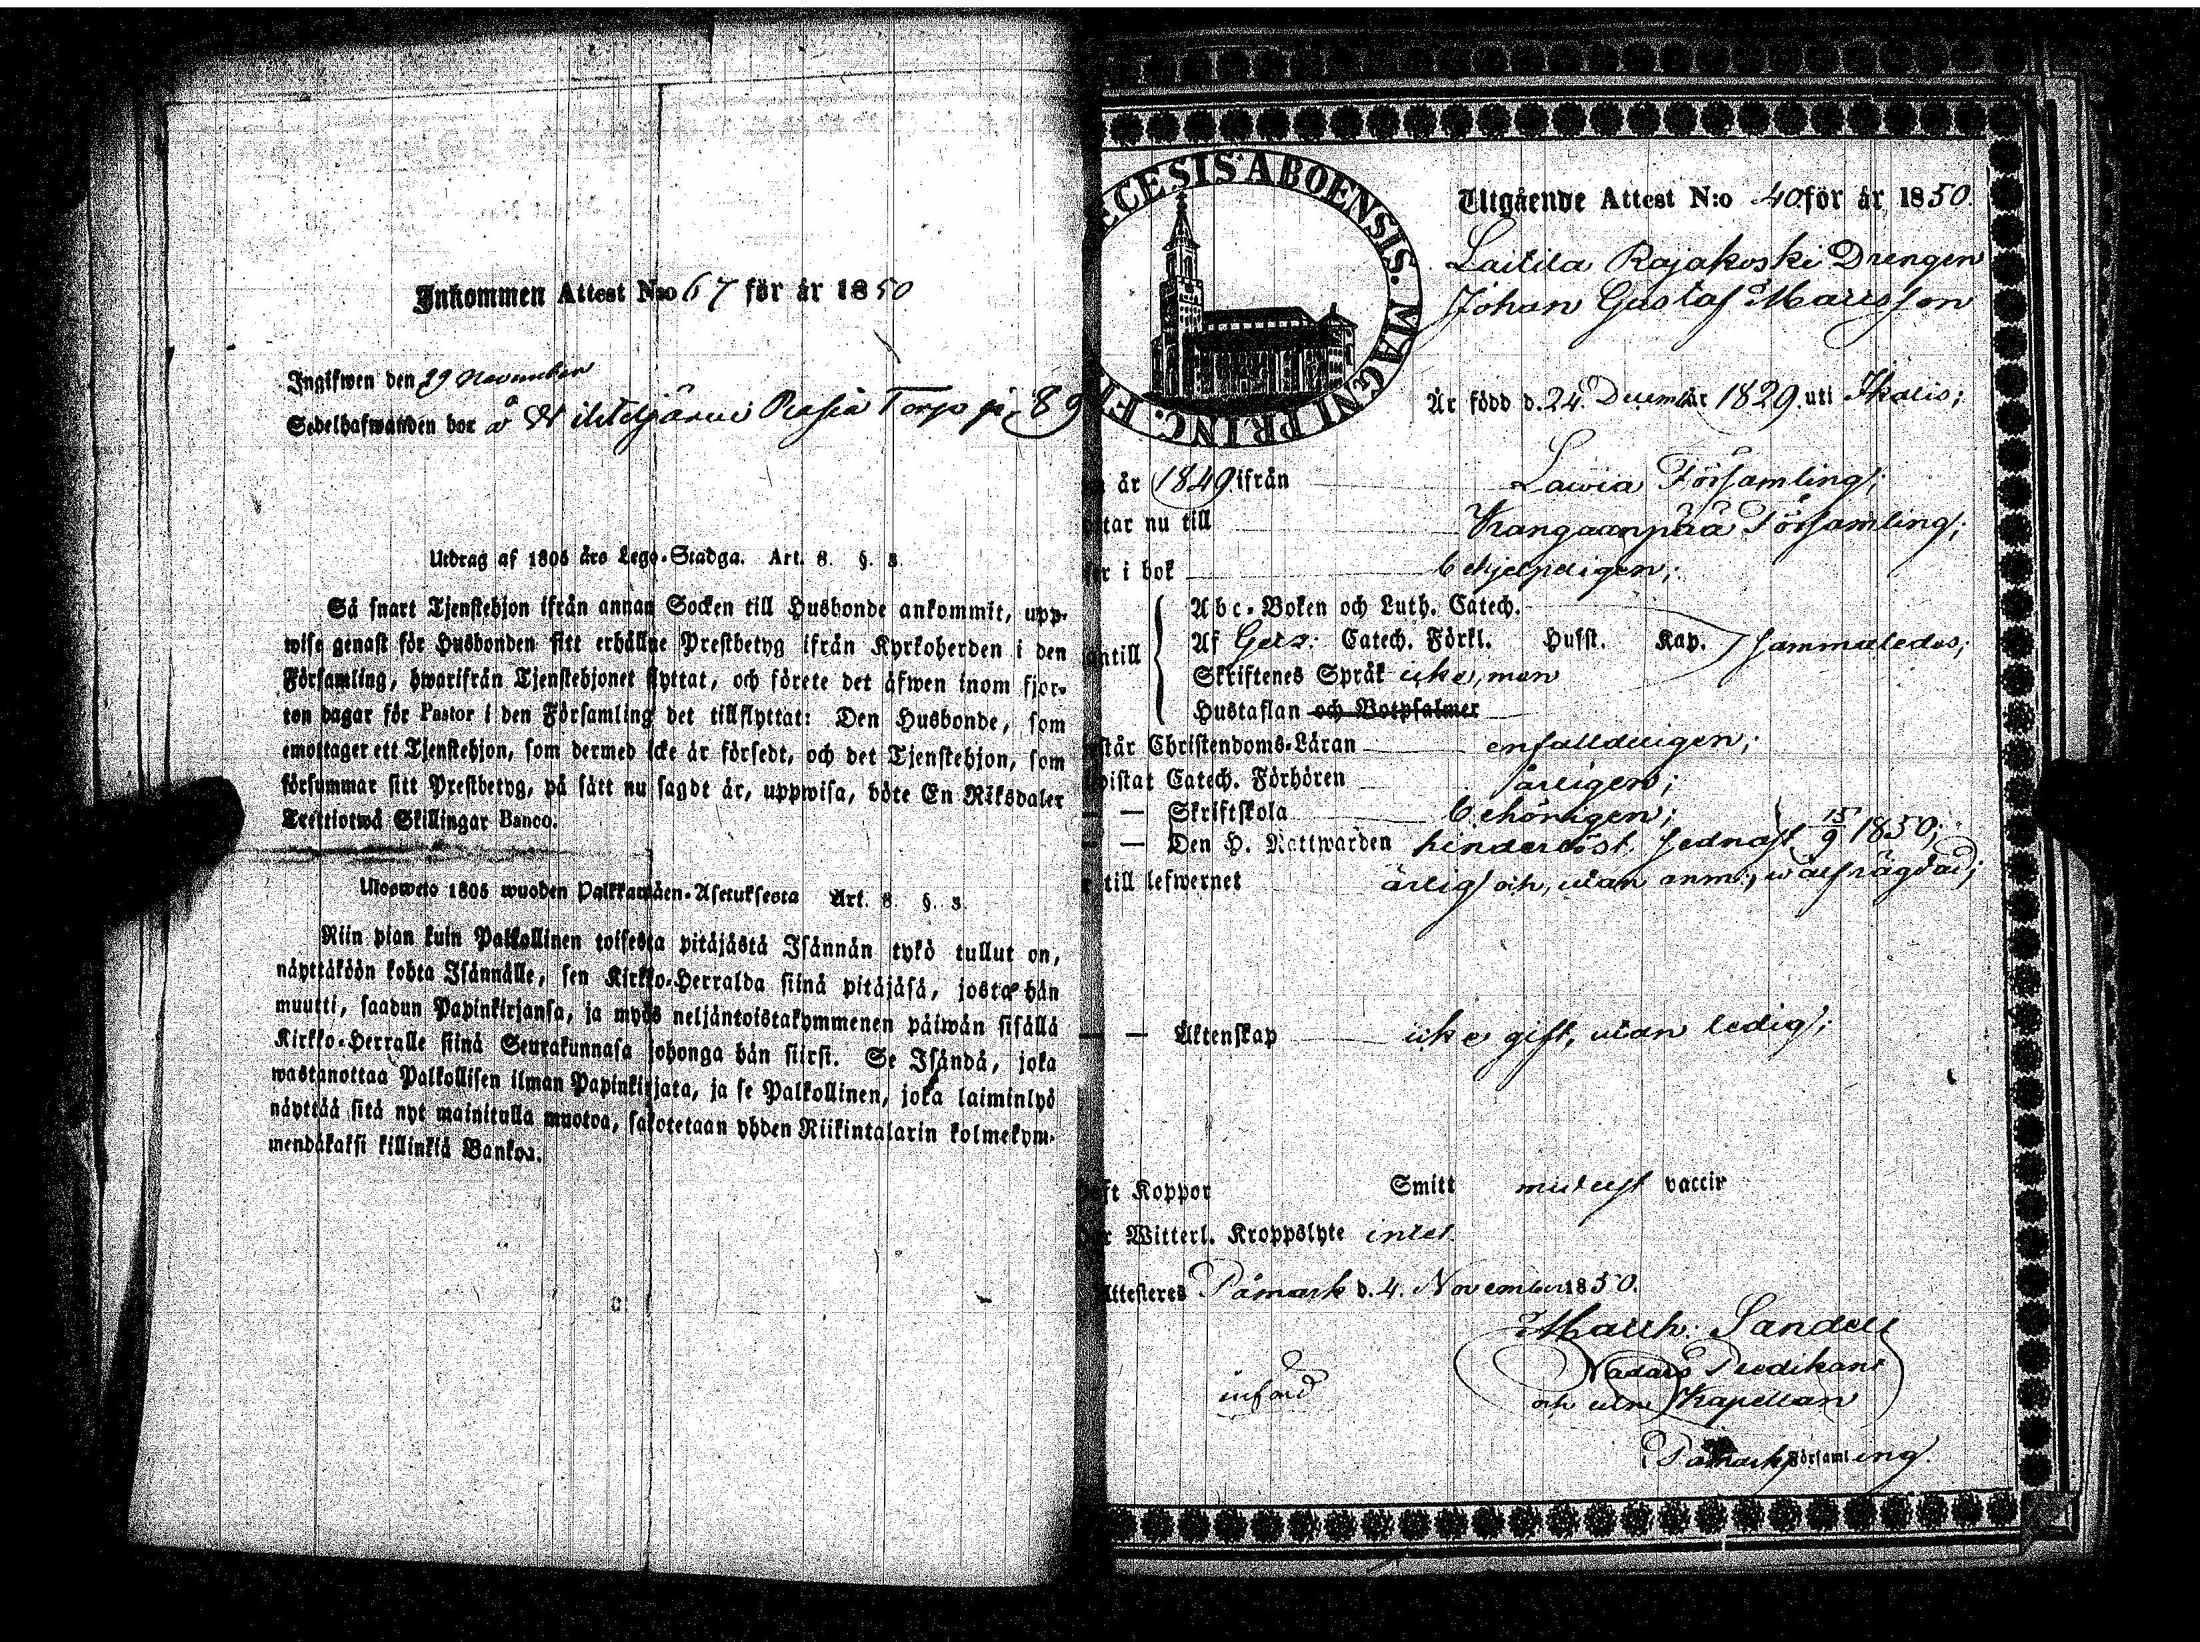 Inkommen Attest N:o 67 för år 1850
Ingifwen den 29 November
Sedelhafwanden bor å Torp p. 89
Utdrag af 1805 års Lego-Stadga. Art. 8. §. 3.
Så snart Tjenstehjon ifrån annan Socken till Husbonde ankommit, upp-
wise genast för Husbonden sitt erhållne Prestbetyg ifrån Kyrkoherden i den
Församling, hwarifrån Tjenstehjonet flyttat, och förete det äfwen inom fjor-
ton dagar för Pastor i den Församling det tillflyttat: Den Husbonde, som
emottager ett Tjenstehjon, som dermed icke är försedt, och det Tjenstehjon, som
försummar sitt Prestbetyg, på sätt nu sagdt är, uppwisa, böte En Riksdaler
Trettiotwå Skillingar Banco.
Ulosweto 1805 wuoden Palkkawäen-Asetuksesta Art. 8. §. 3.
Niin pian kuin Palkollinen toisesta pitäjästä Isännän tykö tullut on,
näyttäköön kohta Isännälle, sen Kirkko-Herralda siinä pitäjäsä, josta hän
muutti, saadun Papinkirjansa, ja myös neljäntoistakymmenen päiwän sisällä
Kirkko-Herralle siinä Seurakunnasa johonga hän siirsi. Se Isändä, joka
wastanottaa Palkollisen ilman Papinkirjata, ja se Palkollinen, joka laiminlyö
näyttää sitä nyt mainitulla muotoa, sakotetaan yhden Riikintalarin kolmekym-
mendäkaksi killinkiä Bankoa.
ECESIS ABOENSIS. MAGNI PRINC. F
Utgående Attest N:o 40 för år 1850.
Laitila Rajakoski Drengen
Johan Gustaf Matsson
Är född d. 24. December 1829. uti Ikalis;
år 1849 ifrån Lawia Församling;
tar nu till Kangaanpää Församling;
r i bok behjelpeligen;
antill
Abc-Boken och Luth. Catech.
Af Gez: Catech. Förkl. Husst. Kap. sammaledes;
Skriftenes Språk icke, men
Hustaflan och Botpsalmer
står Christendoms-Läran enfalldeligen;
istat Catech. Förhören årligen;
— — Skriftskola behörigen;
— — Den H. Nattwarden hinderlöst sednast 15/9 1850;
till lefwernet ärlig och, utan anm:, wälfrägdad;
— — Äktenskap icke gift, utan ledig;
ft Koppor Smitt medelst vaccin
r Witterl. Kroppslyte intet
Attesteres Påmark d. 4. November 1850.
Matth: Sandell
Nådårs Predikant
och Kapellan
införd
Påmark Församling.